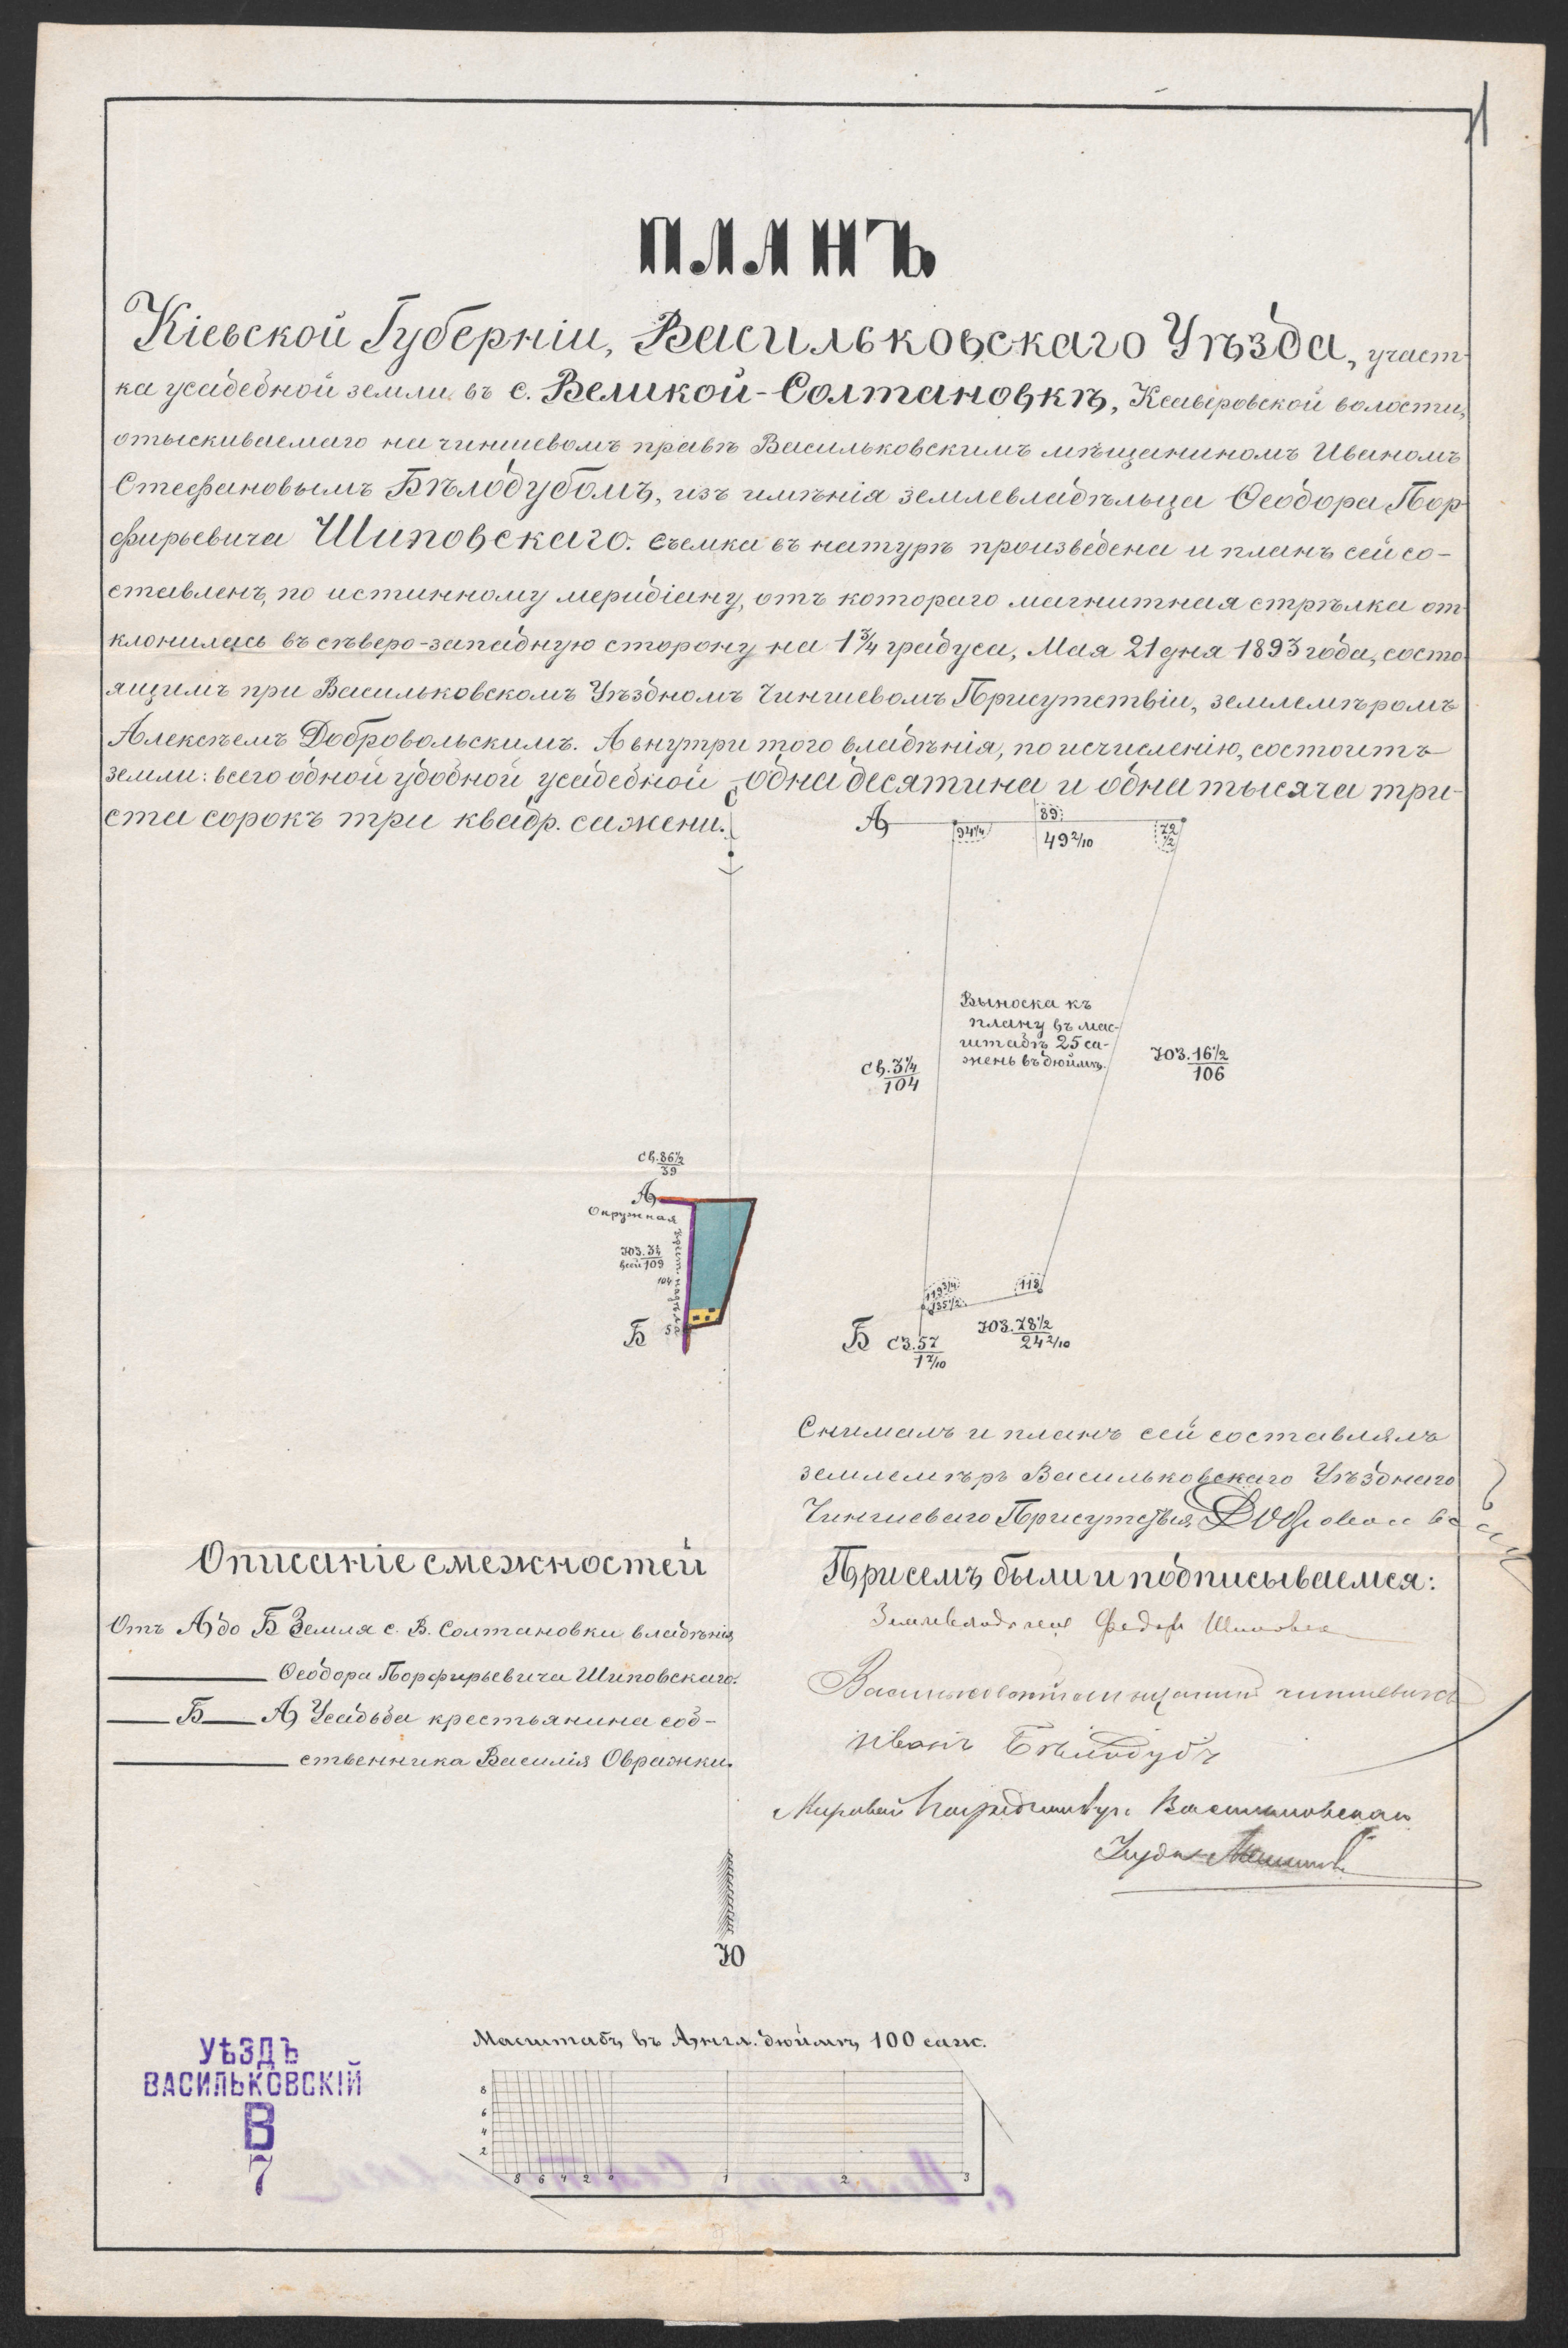 ПЛАНЪ
Кіевской Губерніи, Васильковскаго Уѣзда, участ-
ка усадебной земли въ с. Великой-Солтановкѣ, Ксаверовской волости,
отыскиваемаго на чиншевомъ правѣ Васильковскимъ мѣщаниномъ Иваномъ
Стефановымъ Бѣлодубомъ, изъ имѣнія землевладѣльца Ѳеодора Пор-
фирьевича Шиповскаго. Съемка въ натурѣ произведена и планъ сей со-
ставленъ, по истинному меридіану, отъ котораго магнитная стрѣлка от-
клонилась въ сѣверо-западную сторону на 1¾ градуса, Мая 21 дня 1893 года, состо-
ящимъ при Васильковскомъ Уѣздномъ Чиншевомъ Присутствіи, землемѣромъ
Алексѣемъ Добровольскимъ. А внутри того владѣнія, по исчисленію, состоитъ
земли: всего одной удобной усадебной - одна десятина и одна тысяча три-
ста сорокъ три квадр. сажени.
С
А
94¼
89
49 2/10
72 ½
Выноска къ
плану въ мас-
штабѣ 25 са-
жень въ дюймѣ.
СВ. 3¼
104
ЮЗ. 16½
106
СВ. 86½
39
А
Окружная
ЮЗ. 34
всей 109
104
Б
5
119¾
135½
118
Б
СЗ. 57
1 7/10
ЮЗ. 78½
24 2/10
Снималъ и планъ сей составлялъ
землемѣръ Васильковскаго Уѣзднаго
Чиншеваго Присутствія Добровольскій
Описаніе смежностей
Отъ А до Б Земля с. В. Солтановки владѣнія
Ѳеодора Порфирьевича Шиповскаго.
Б А Усадьба крестьянина соб-
ственника Василія Овражки.
При семъ были и подписываемся:
Землевладѣлец Федор Шиповск
Васильковскій мѣщанинъ чиншевикъ
Иванъ Бѣлодубъ
Мировой Посредникъ
Ю
Масштабъ въ Англ. дюймѣ 100 саж.
8
6
4
2
8 6 4 2 0 1 2 3
УѢЗДЪ
ВАСИЛЬКОВСКІЙ
В
7